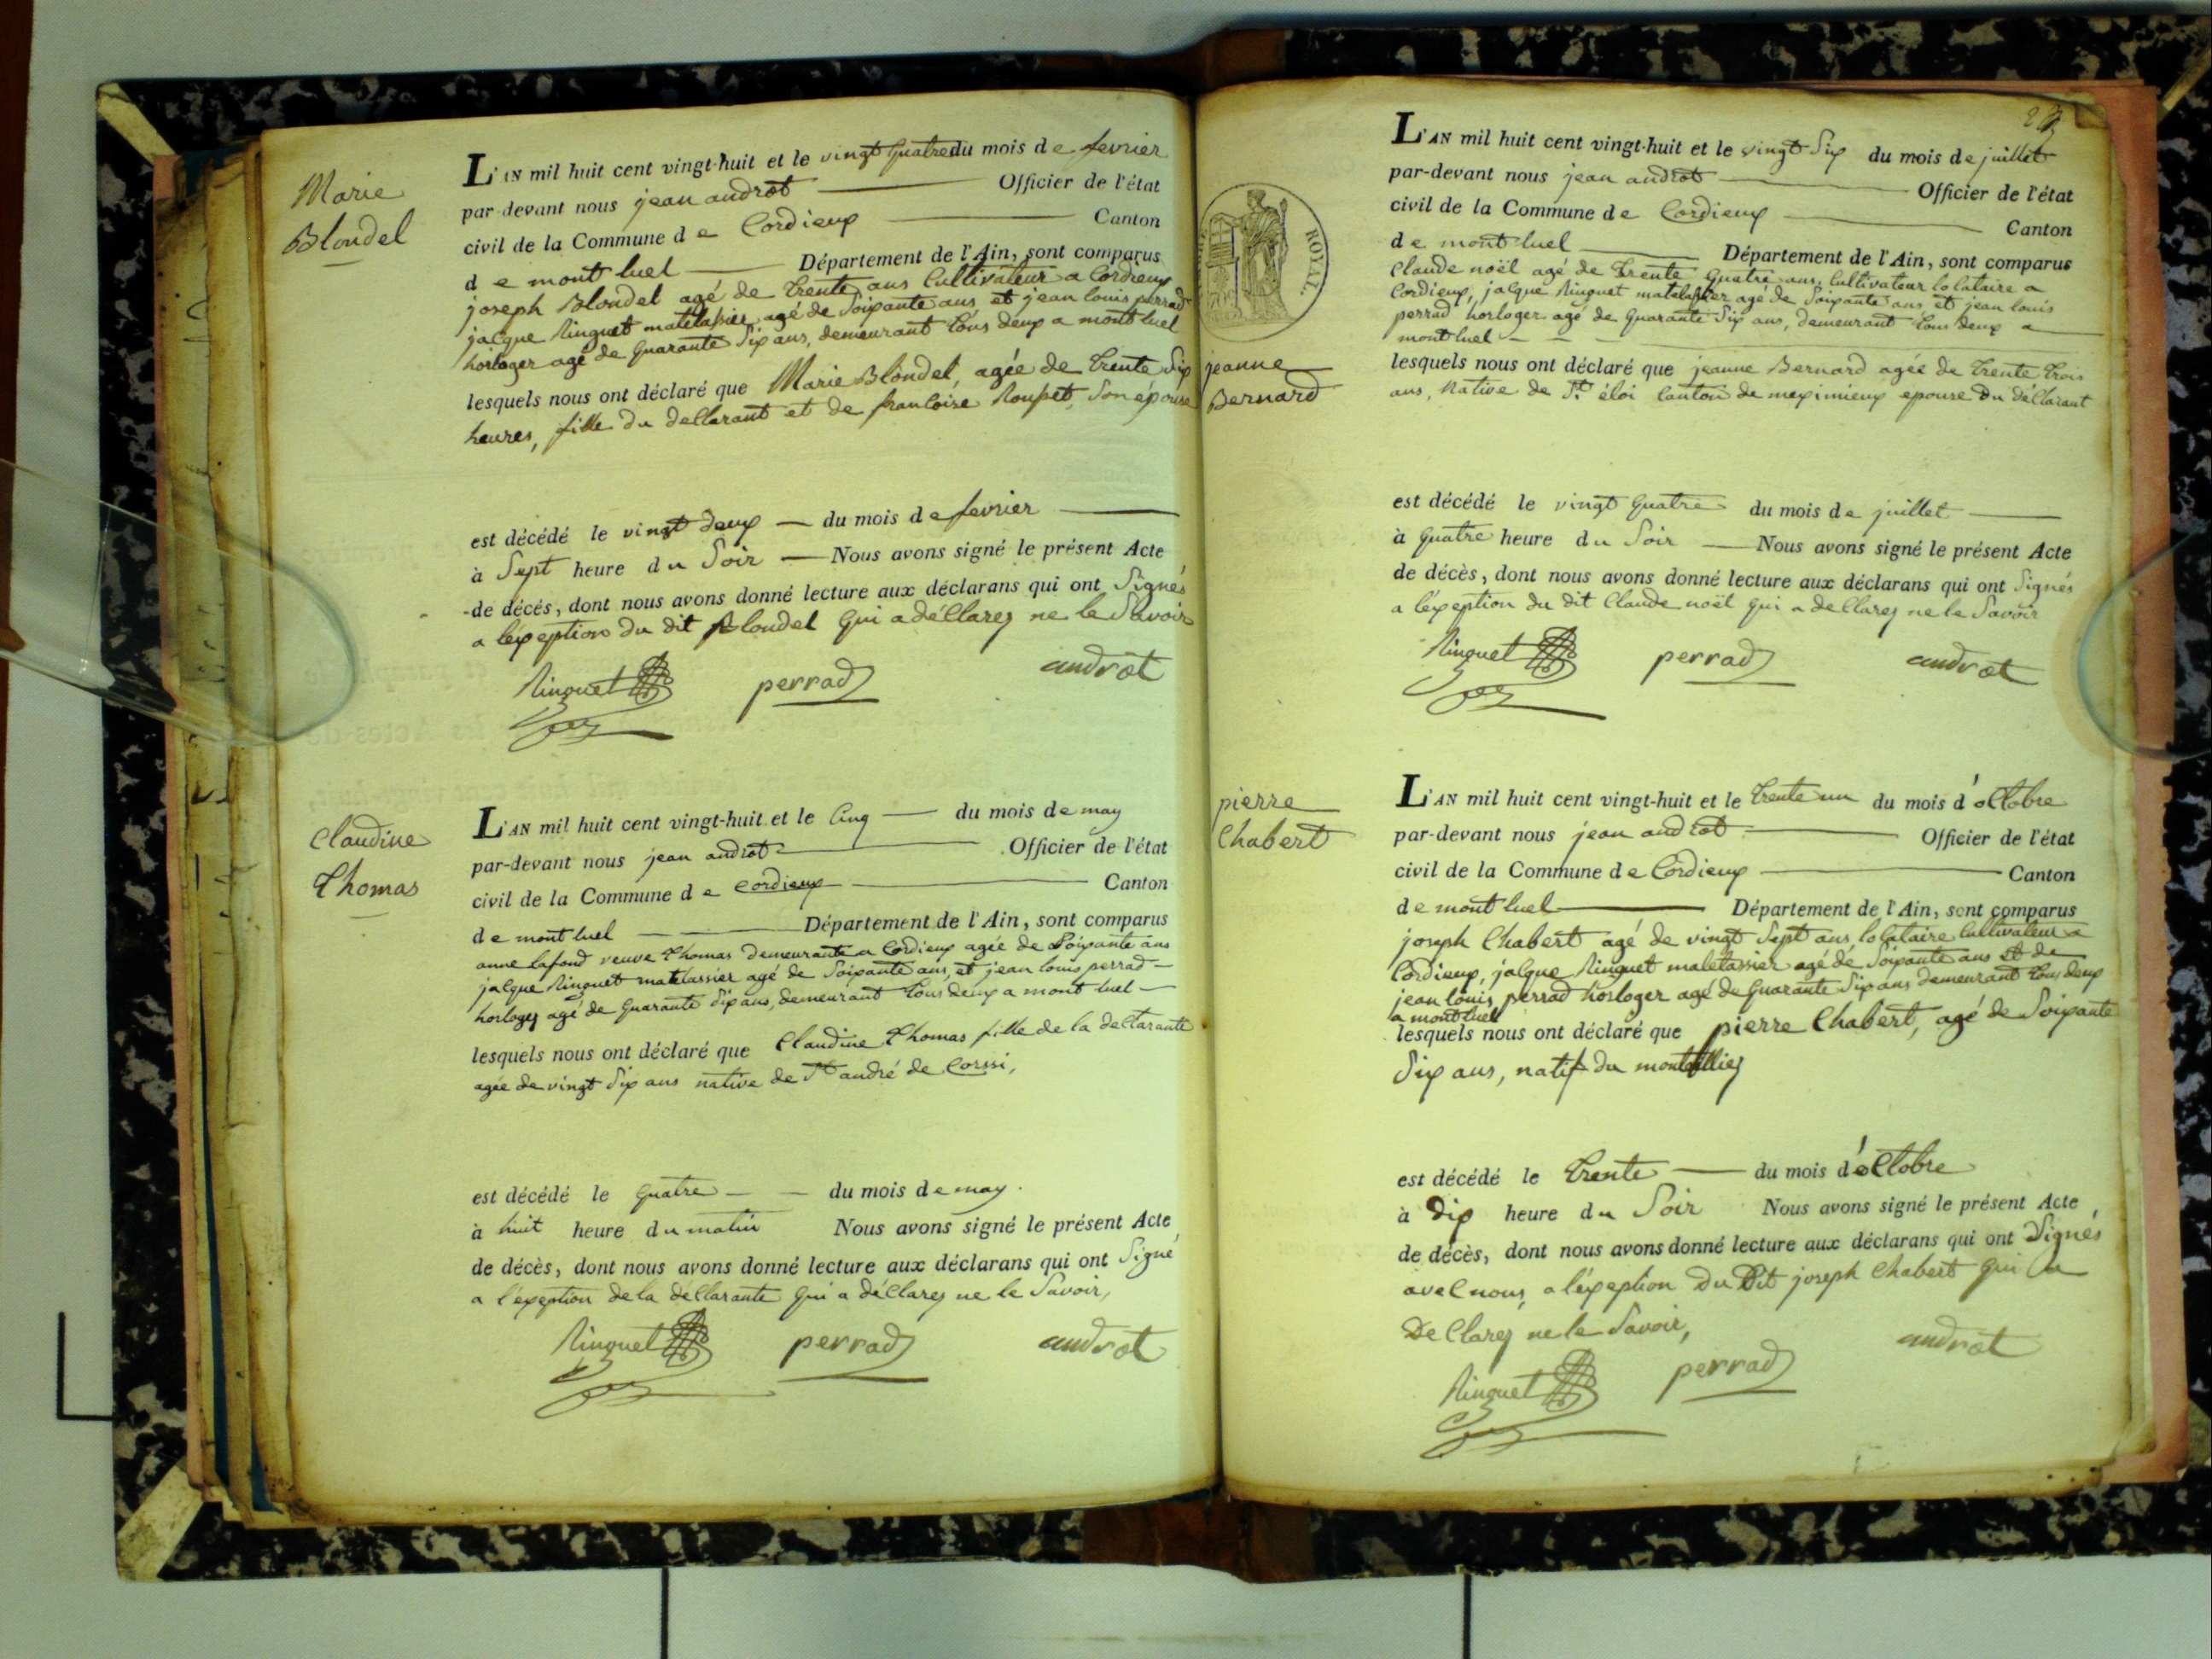 Marie
Blondel
L'AN mil huit cent vingt-huit et le vingt quatre du mois de fevrier
par-devant nous jean androt Officier de l'état
civil de la Commune de Cordieux Canton
de mont luel Département de l'Ain, sont comparus
joseph Blondel agé de trente ans Cultivateur a Cordieux
jacque Ringuet matelassier agé de Soixante ans et jean louis perrad
horloger agé de quarante Six ans, demeurant tous deux a mont luel
lesquels nous ont déclaré que Marie Blondel, agée de trente Six
heures, fille du declarant et de francoise Rousset, Son épouse
est décédé le vingt deux du mois de fevrier
à Sept heure du Soir Nous avons signé le présent Acte
de décès, dont nous avons donné lecture aux déclarans qui ont Signés
a l'exeption du dit Blondel qui a déclarez ne le Savoir
Ringuet perrad androt
Claudine
Thomas
L'AN mil huit cent vingt-huit et le Cinq du mois de may
par-devant nous jean androt Officier de l'état
civil de la Commune de Cordieux Canton
de mont luel Département de l'Ain, sont comparus
anne lafond veuve Thomas demeurante a Cordieux agée de Soixante ans
jacque Ringuet matelassier agé de Soixante ans, et jean louis perrad
horloger agé de quarante Six ans, demeurant tous deux a mont luel
lesquels nous ont déclaré que Claudine Thomas fille de la declarante
agée de vingt Six ans native de St andré de Corssi,
est décédé le quatre du mois de may
à huit heure du matin Nous avons signé le présent Acte
de décès, dont nous avons donné lecture aux déclarans qui ont Signé
a l'exeption de la déclarante qui a déclarez ne le Savoir,
Ringuet perrad androt
ROYAL.
L'AN mil huit cent vingt-huit et le vingt Six du mois de juillet
par-devant nous jean androt Officier de l'état
civil de la Commune de Cordieux Canton
de mont luel Département de l'Ain, sont comparus
Claude noël agé de trente quatre ans, Cultivateur locataire a
Cordieux, jacque Ringuet matelassier agé de Soixante ans et jean louis
perrad horloger agé de quarante Six ans, demeurant tous deux a
mont luel
jeanne
Bernard
lesquels nous ont déclaré que jeanne Bernard agée de trente trois
ans, Native de St. éloi Canton de meximieux epouse du déclarant
est décédé le vingt quatre du mois de juillet
à quatre heure du Soir Nous avons signé le présent Acte
de décès, dont nous avons donné lecture aux déclarans qui ont Signés
a l'exeption du dit Claude noël qui a declarez ne le Savoir
Ringuet perrad androt
pierre
Chabert
L'AN mil huit cent vingt-huit et le trente un du mois d'octobre
par-devant nous jean androt Officier de l'état
civil de la Commune de Cordieux Canton
de mont luel Département de l'Ain, sont comparus
joseph Chabert agé de vingt Sept ans locataire Cultivateur a
Cordieux, jacque Ringuet matelassier agé de Soixante ans et de
jean louis perrad horloger agé de quarante Six ans demeurant tous deux
a mont luel
lesquels nous ont déclaré que pierre Chabert, agé de Soixante
Six ans, natif du montellier
est décédé le trente du mois d'octobre
à dix heure du Soir Nous avons signé le présent Acte
de décès, dont nous avons donné lecture aux déclarans qui ont Signés
avec nous, a l'exeption du dit joseph Chabert qui a
declarez ne le Savoir,
Ringuet perrad androt